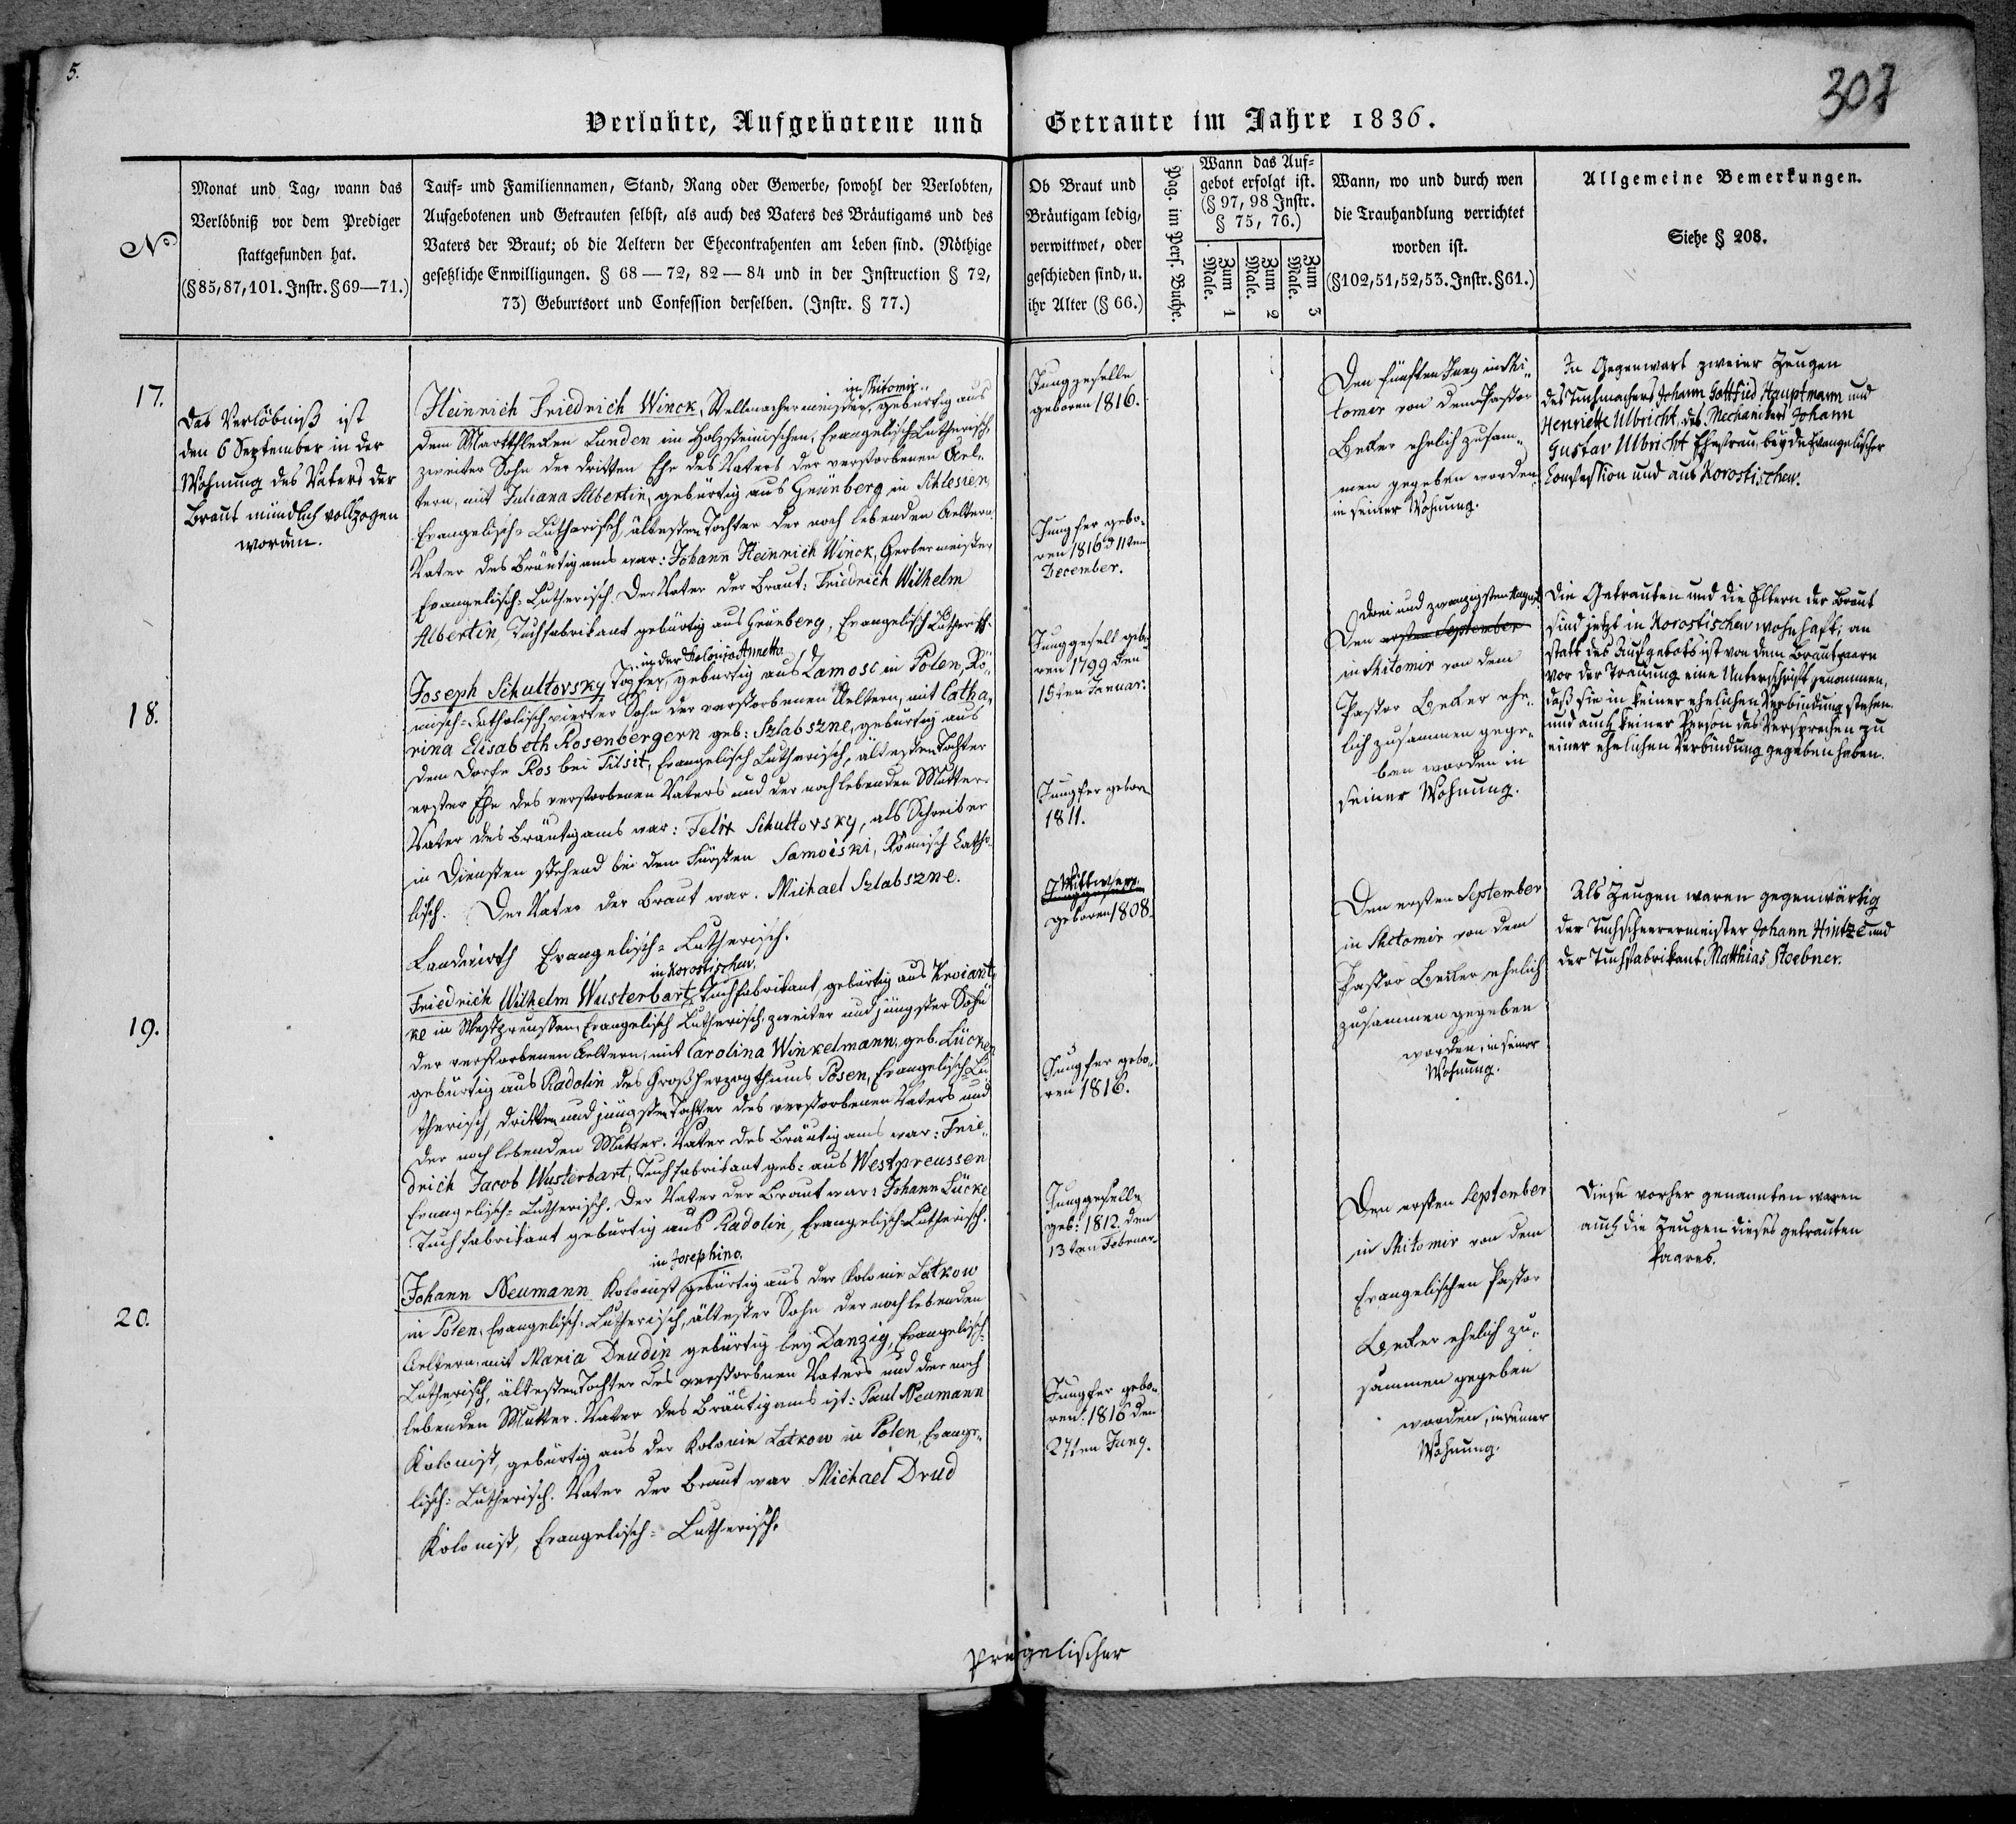 5.
307
Verlobte, Aufgebotene und Getraute im Jahre 1836.
No
Monat und Tag, wann das
Verlöbniß vor dem Prediger
stattgefunden hat.
(§85,87,101. Instr. §69—71.)
Tauf- und Familiennamen, Stand, Rang oder Gewerbe, sowohl der Verlobten,
Aufgebotenen und Getrauten selbst, als auch des Vaters des Bräutigams und des
Vaters der Braut; ob die Aeltern der Ehecontrahenten am Leben sind. (Nöthige
gesetzliche Enwilligungen. § 68—72, 82—84 und in der Instruction § 72,
73) Geburtsort und Confession derselben. (Instr. § 77.)
Ob Braut und
Bräutigam ledig,
verwittwet, oder
geschieden sind, u.
ihr Alter (§ 66.)
Pag. im Pers. Buche.
Wann das Auf-
gebot erfolgt ist.
(§ 97, 98 Instr.
§ 75, 76.)
Zum 1 Male.
Zum 2 Male.
Zum 3 Male.
Wann, wo und durch wen
die Trauhandlung verrichtet
worden ist.
(§102,51,52,53. Instr. §61.)
Allgemeine Bemerkungen.
Siehe § 208.
17.
Das Verlöbniß ist
den 6 September in der
Wohnung des Vaters der
Braut mündlich vollzogen
worden.
in Shitomir
Heinrich Friedrich Winck, Stellmachermeister, gebürtig aus
dem Marktflecken Lunden im Holzsteinischen, Evangelisch-Lutherisch,
zweiter Sohn der dritten Ehe des Vaters der verstorbenen Ael-
tern, mit Juliana Albertin, gebürtig aus Grünberg in Schlesien,
Evangelisch-Lutherisch, ältesten Tochter der noch lebenden Aeltern.
Vater des Bräutigams war: Johann Heinrich Winck, Gerbermeister
Evangelisch-Lutherisch. Der Vater der Braut: Friedrich Wilhelm
Albertin, Tuchfabrikant gebürtig aus Grünberg, Evangelisch Lutherisch.
Junggeselle
geboren 1816.
Jungfer gebo-
ren 1816 d 11ten
December.
Den fünften Juny in Shi-
tomir von dem Pastor
Becker ehelich zusam-
men gegeben worden
in seiner Wohnung.
In Gegenwart zweier Zeugen
des Tuchmachers Johann Gottfried Hauptmann und
Henriette Ulbricht, des Mechanikers Johann
Gustav Ulbricht Ehefrau, beyde Evangelischer
Confession und aus Korostischew.
18.
in der Kolonie Annetta
Joseph Schultovsky Töpfer, gebürtig aus Zamosc in Polen, Rö-
misch-Katholisch, vierter Sohn der verstorbenen Aeltern, mit Catha-
rina Elisabeth Rosenbergern geb: Szlabszne, gebürtig aus
dem Dorfe Ros bei Tilsit, Evangelisch Lutherisch, ältesten Tochter
erster Ehe des verstorbenen Vaters und der noch lebenden Mutter.
Vater des Bräutigams war: Felix Schultovsky, als Schreiber
in Diensten stehend bei dem Fürsten Samoiski, Römisch Katho-
lisch. Der Vater der Braut war. Michael Szlabszne.
Landwirth Evangelisch-Lutherisch.
Junggesell gebo-
ren 1799 den
15ten Januar.
Jungfer geboren
1811.
drei und zwanzigsten August
Den ersten September
in Shitomir von dem
Pastor Becker ehe-
lich zusammen gege-
ben worden in
seiner Wohnung.
Die Getrauten und die Eltern der Braut
sind jetzt in Korostischew wohnhaft; an
statt des Aufgebots ist von dem Brautpaare
vor der Trauung eine Unterschrift genommen,
daß sie in keiner ehelichen Verbindung stehen
und auch keiner Person das Versprechen zu
einer ehelichen Verbindung gegeben haben.
19.
in Korostischew.
Friedrich Wilhelm Wusterbart, Tuchfabrikant, gebürtig aus Kroiant-
ke in Westpreussen, Evangelisch Lutherisch, zweiter und jüngster Sohn
der verstorbenen Aeltern, mit Carolina Winkelmann, geb. Lücken
gebürtig aus Radolin des Großherzogthums Posen, Evangelisch-Lu-
therisch, dritten und jüngsten Tochter des verstorbenen Vaters und
der noch lebenden Mutter. Vater des Bräutigams war: Frie-
drich Jacob Wusterbart, Tuchfabrikant geb: aus Westpreussen
Evangelisch-Lutherisch. Der Vater der Braut war: Johann Lücke
Tuchfabrikant gebürtig aus Radolin, Evangelisch-Lutherisch.
Wittwer
geboren 1808.
Jungfer gebo-
ren 1816.
Den ersten September
in Shitomir von dem
Pastor Becker ehelich
zusammen gegeben
worden, in seiner
Wohnung.
Als Zeugen waren gegenwärtig
der Tuchscheerermeister Johann Hintze und
der Tuchfabrikant Matthias Stoebner.
20.
in Josephino.
Johann Neumann Kolonist gebürtig aus der Kolonie Latkow
in Polen, Evangelisch-Lutherisch, ältester Sohn der noch lebenden
Aeltern, mit Maria Drudin gebürtig bey Danzig, Evangelisch-
Lutherisch, ältesten Tochter des verstorbnen Vaters und der noch
lebenden Mutter. Vater des Bräutigams ist: Paul Neumann
Kolonist, gebürtig aus der Kolonie Latkow in Polen, Evange-
lisch-Lutherisch. Vater der Braut war Michael Drud
Kolonist, Evangelisch-Lutherisch.
Junggeselle
geb: 1812. den
13ten Februar.
Jungfer gebo-
ren: 1816 den
27ten Juny.
Den ersten September
in Shitomir von dem
Evangelischen Pastor
Becker ehelich zu-
sammen gegeben
worden, in seiner
Wohnung.
Diese vorher genannten waren
auch die Zeugen dieses getrauten
Paares.